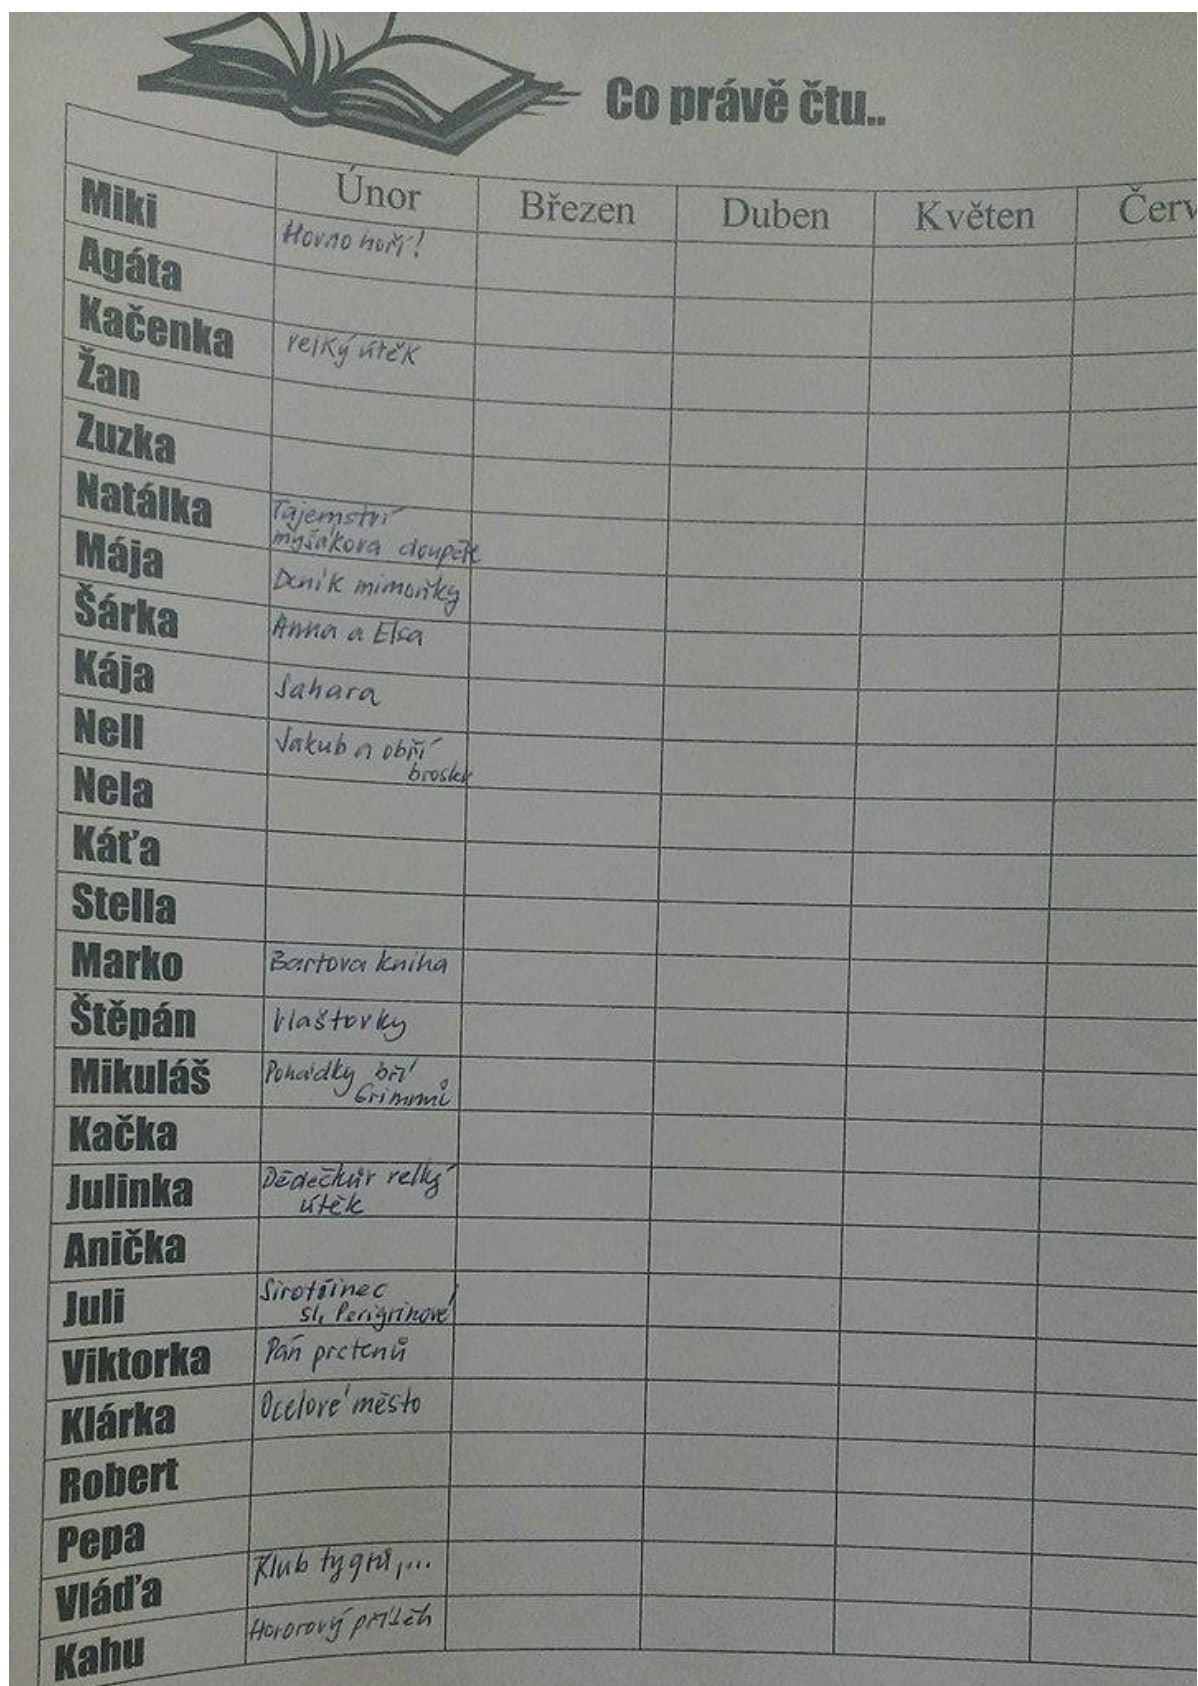 Co právě čtu..
Únor Březen Duben Květen Červ
Miki Hovno hoří!
Agáta
Kačenka velký útěk
Žan
Zuzka
Natálka Tajemství
myšákova doupěte
Mája Deník mimoňky
Šárka Anna a Elsa
Kája Sahara
Nell Jakub a obří
broskev
Nela
Káťa
Stella
Marko Bartova kniha
Štěpán Vlaštovky
Mikuláš Pohádky bří
Grimmů
Kačka
Julinka Dědečkův velký
útěk
Anička
Juli Sirotčinec
sl. Perigrinové
Viktorka Pán prstenů
Klárka Ocelové město
Robert
Pepa
Vláďa Klub tygrů,...
Kahu Hororový příběh